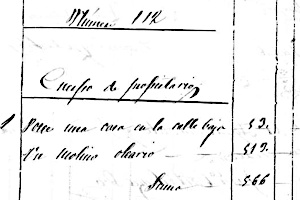 Número 112
de propietario
1 Posee una casa en la calle baja 53.
Un Molino oleario — 513.
Suma 566